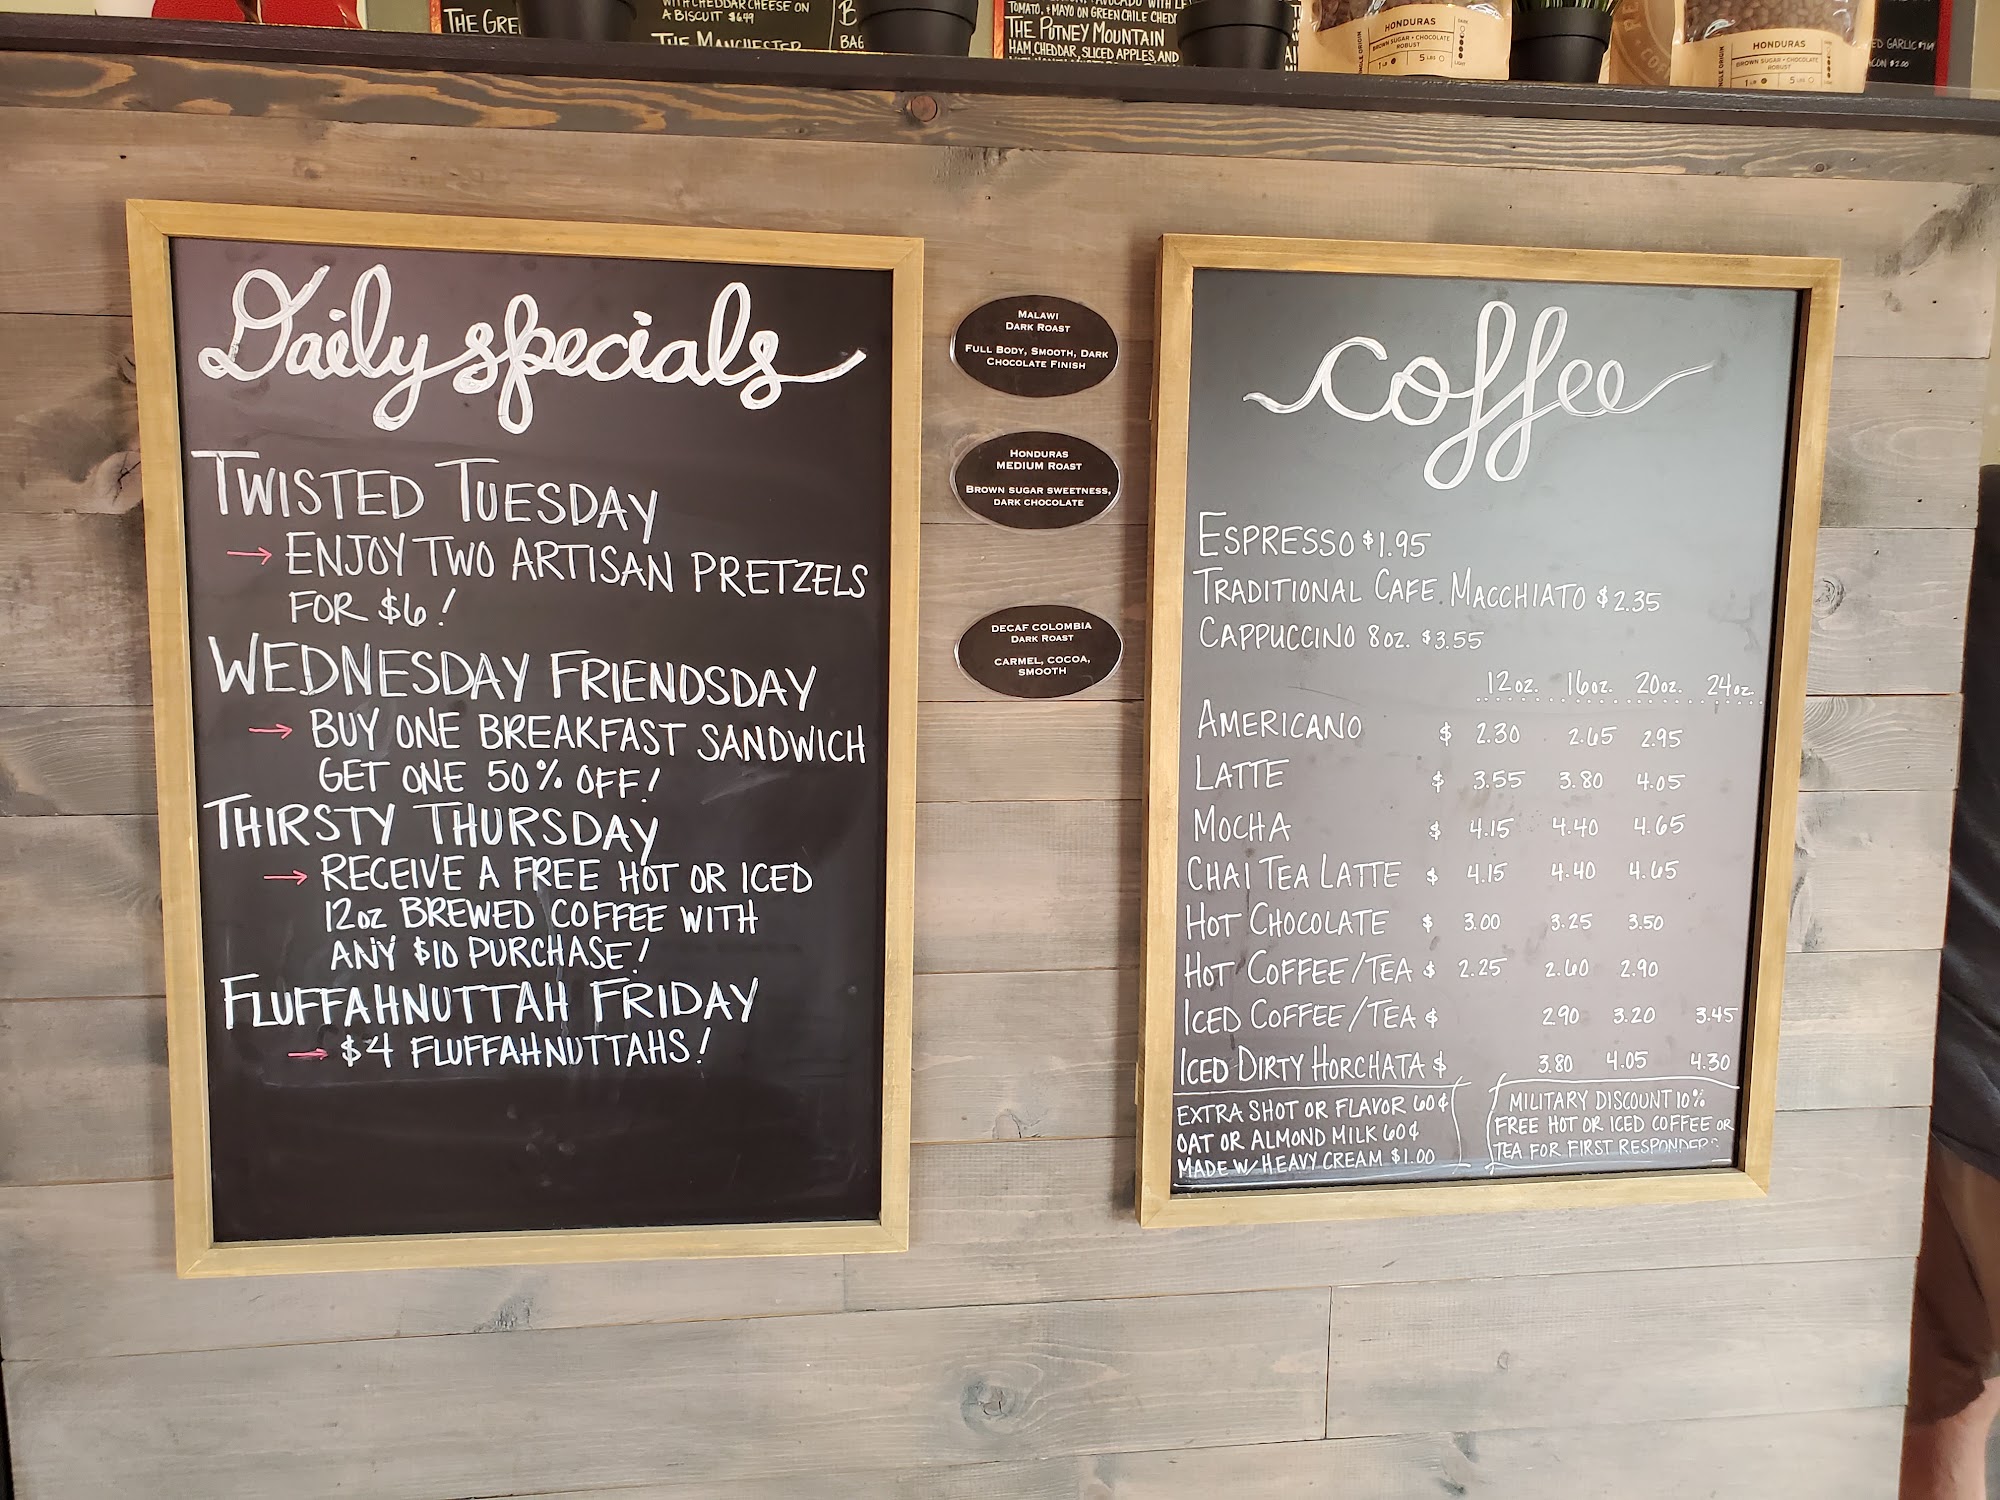 THE GRE
WITH CHEDDAR CHEESE ON
A BISCUIT $6.99
THE MANCHESTER
B
BAG
TOMATO, & MAYO ON GREEN CHILE CHED
THE PUTNEY MOUNTAIN
HAM, CHEDDAR, SLICED APPLES, AND
HONDURAS
BROWN SUGAR • CHOCOLATE
ROBUST
1 LB
5 LBS
HONDURAS
BROWN SUGAR • CHOCOLATE
ROBUST
1 LB
5 LBS
ED GARLIC
CON $2.00
Daily specials
TWISTED TUESDAY
→ ENJOY TWO ARTISAN PRETZELS
FOR $6!
WEDNESDAY FRIENDSDAY
→ BUY ONE BREAKFAST SANDWICH
GET ONE 50% OFF!
THIRSTY THURSDAY
→ RECEIVE A FREE HOT OR ICED
12oz BREWED COFFEE WITH
ANY $10 PURCHASE!
FLUFFAHNUTTAH FRIDAY
→ $4 FLUFFAHNUTTAHS!
MALAWI
DARK ROAST
FULL BODY, SMOOTH, DARK
CHOCOLATE FINISH
HONDURAS
MEDIUM ROAST
BROWN SUGAR SWEETNESS,
DARK CHOCOLATE
DECAF COLOMBIA
DARK ROAST
CARMEL, COCOA,
SMOOTH
coffee
ESPRESSO $1.95
TRADITIONAL CAFE MACCHIATO $2.35
CAPPUCCINO 8oz. $3.55
12oz. 16oz. 20oz. 24oz.
AMERICANO $ 2.30 2.65 2.95
LATTE $ 3.55 3.80 4.05
MOCHA $ 4.15 4.40 4.65
CHAI TEA LATTE $ 4.15 4.40 4.65
HOT CHOCOLATE $ 3.00 3.25 3.50
HOT COFFEE/TEA $ 2.25 2.60 2.90
ICED COFFEE/TEA $ 2.90 3.20 3.45
ICED DIRTY HORCHATA $ 3.80 4.05 4.30
EXTRA SHOT OR FLAVOR 60¢
OAT OR ALMOND MILK 60¢
MADE W/ HEAVY CREAM $1.00
MILITARY DISCOUNT 10%
FREE HOT OR ICED COFFEE OR
TEA FOR FIRST RESPONDERS